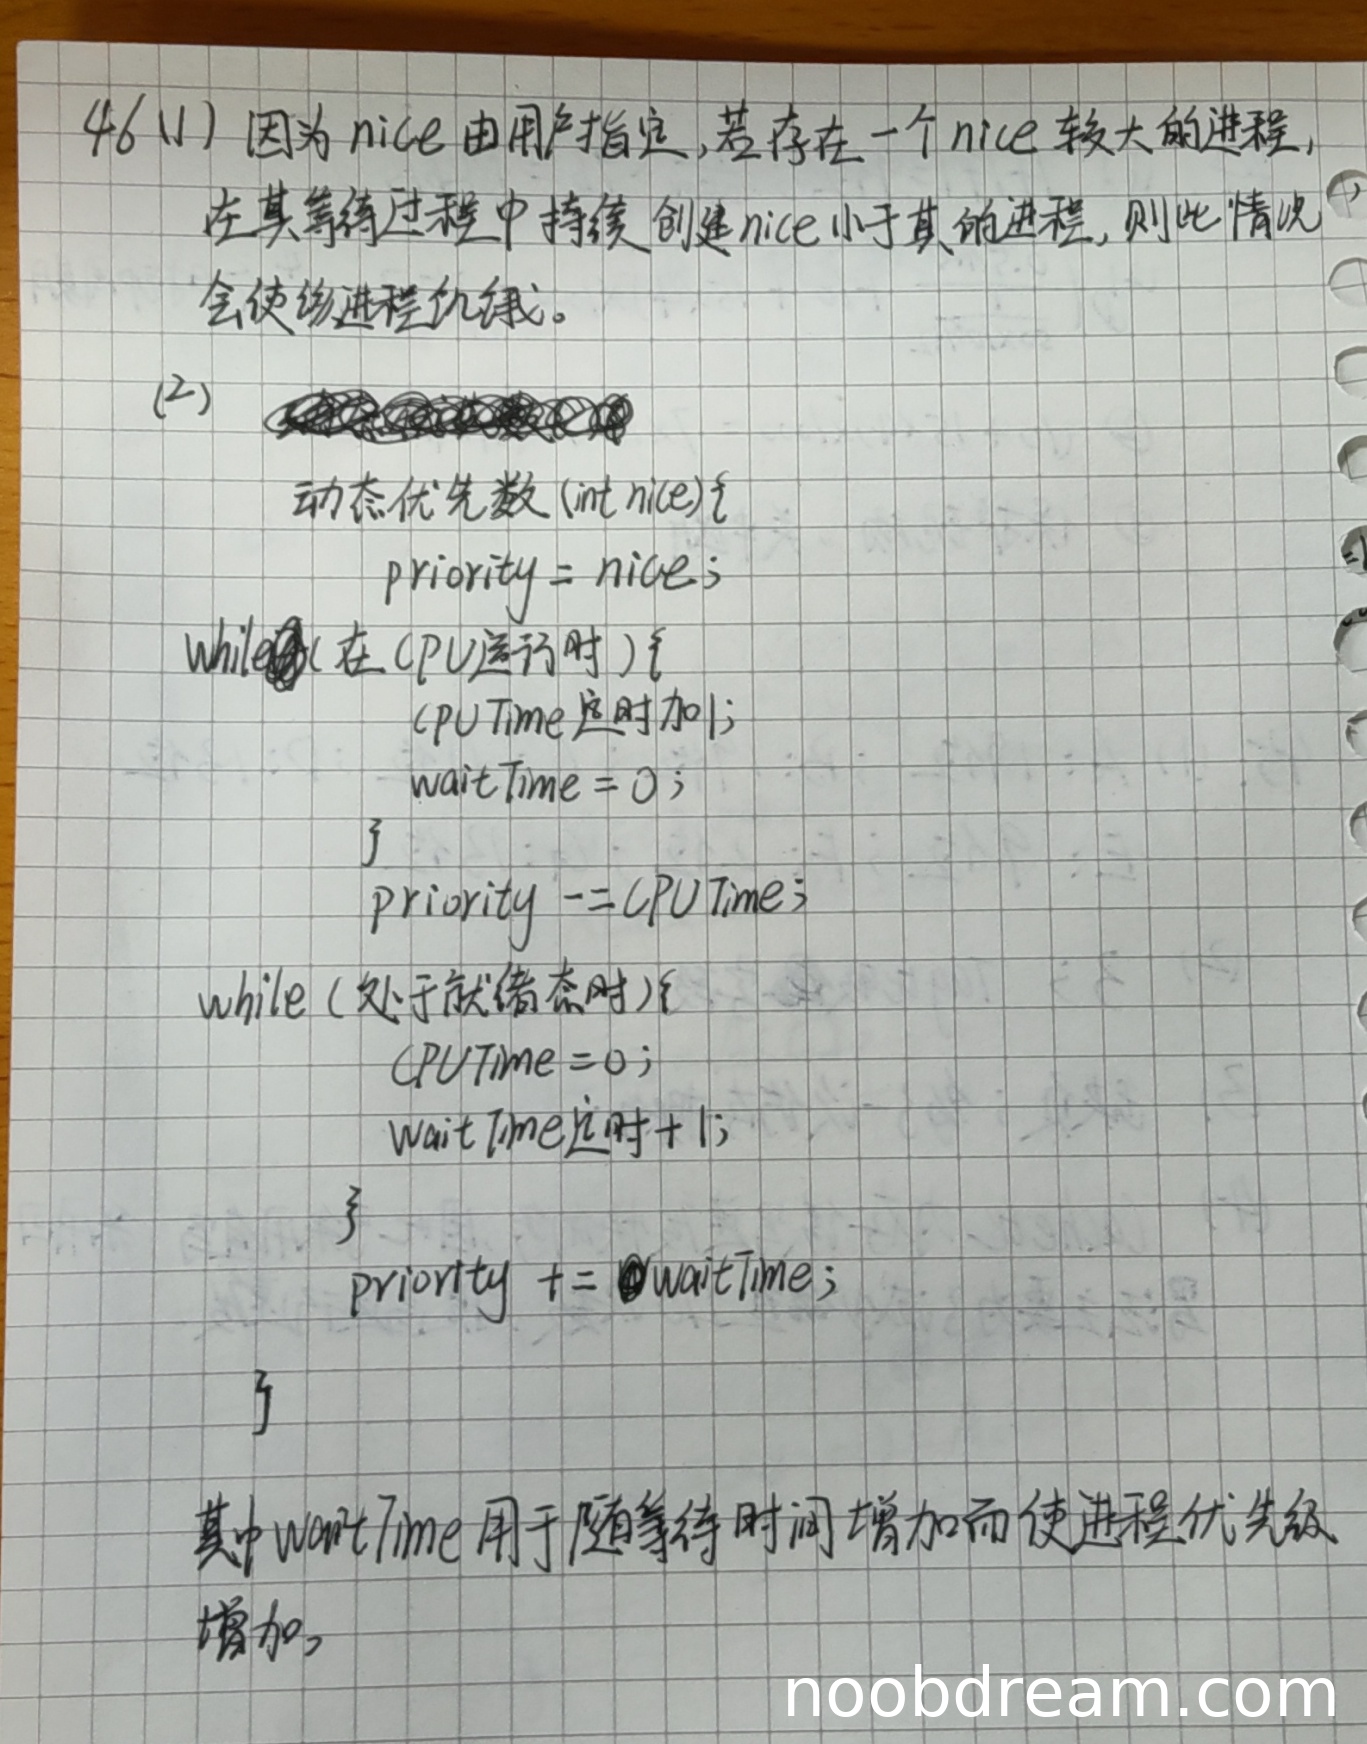 46(1) 因为nice由用户指定,若存在一个nice较大的进程,
在其等待过程中持续创建nice小于其的进程,则此情况
会使该进程饥饿。
(2)
动态优先数(int nice){
priority = nice;
while(在CPU运行时){
CPUTime定时加1;
waitTime = 0;
}
priority -= CPUTime;
while(处于就绪态时){
CPUTime = 0;
waitTime定时+1;
}
priority += waitTime;
}
其中waitTime用于随等待时间增加而使进程优先级
增加,
noobdream.com